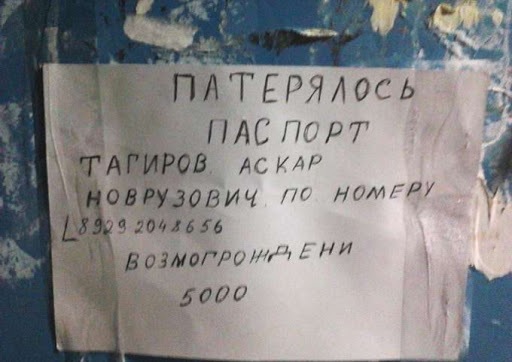 ПАТЕРЯЛОСЬ
ПАСПОРТ
ТАГИРОВ АСКАР
НОВРУЗОВИЧ. ПО НОМЕРУ
89292048656
ВОЗМОГРОЖДЕНИ
5000